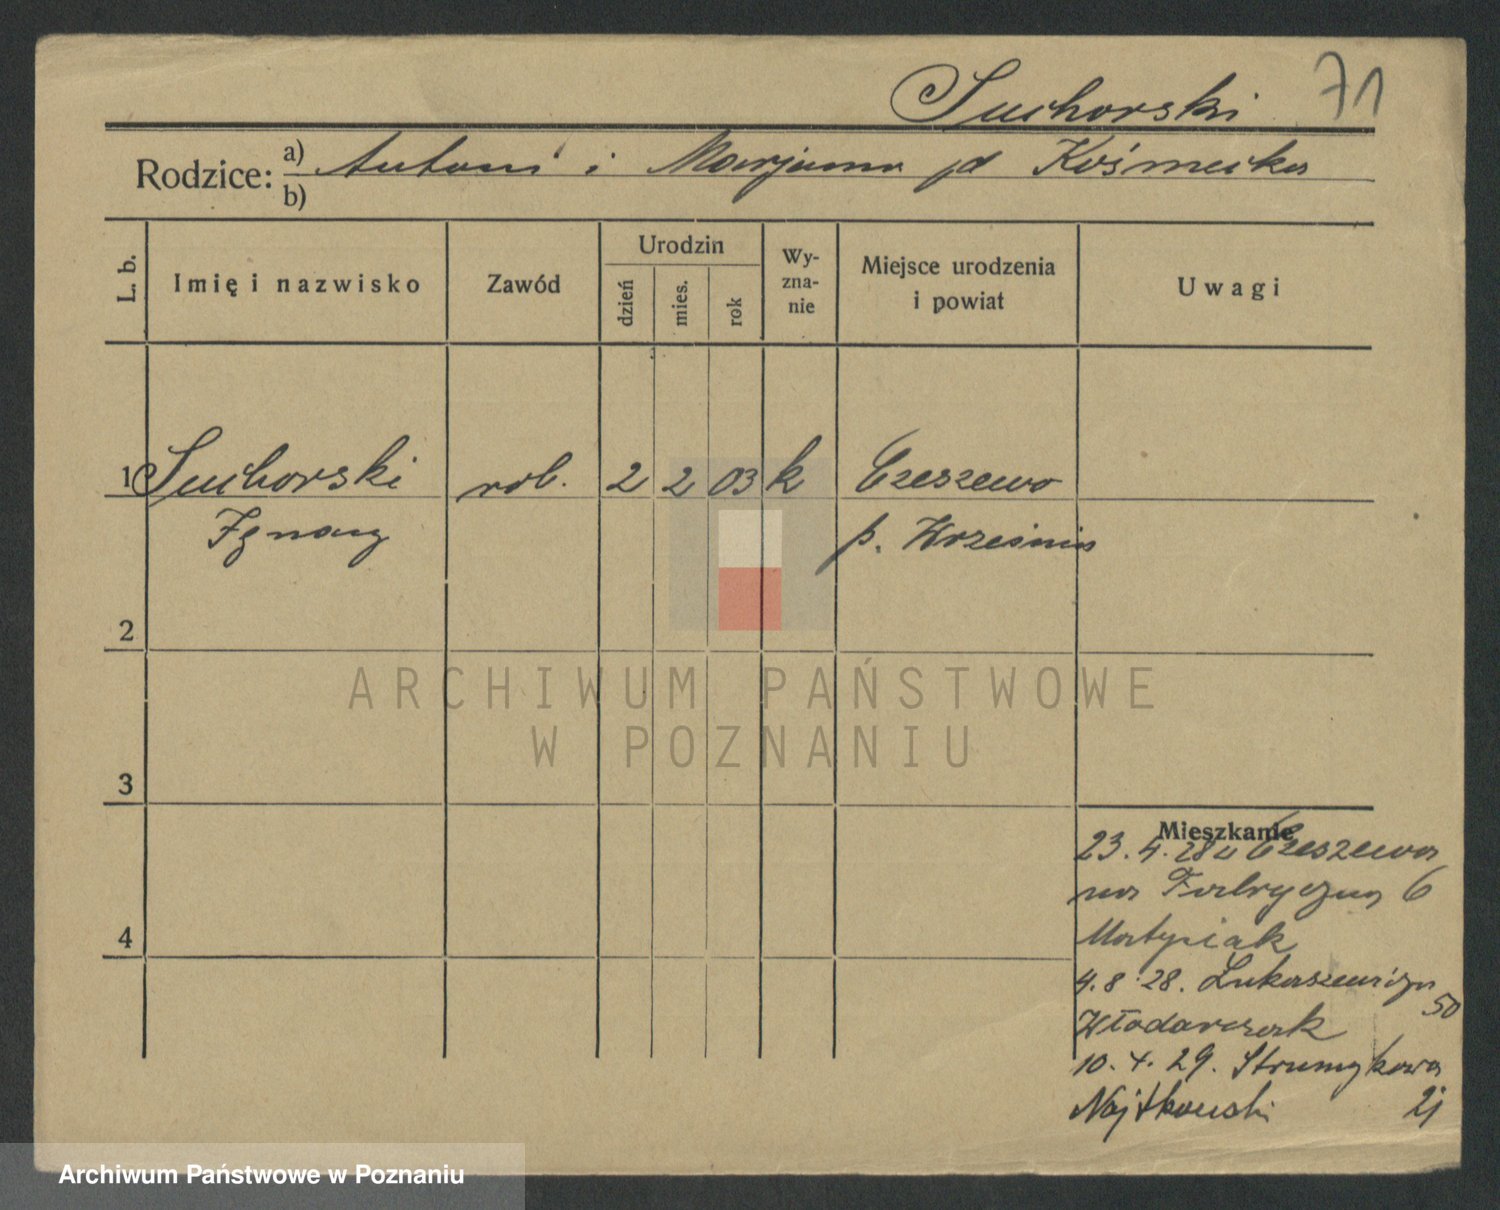 Suchorski 71
Rodzice: a) Antoni i Marjanna
b)
L. b.
Imię i nazwisko
Zawód
Urodzin
dzień
mies.
rok
Wy-
zna-
nie
Miejsce urodzenia
i powiat
Uwagi
1 Suchorski rob. 2 2 03 k Czeszewo
Ignacy p. Września
2
3
4
Mieszkanie
23. 4. 28 Czeszewa
na Fabryczną 6
Matysiak
4.8.28. Łukaszewicza
50
Włodarczak
10. 4. 29. Strumykowa
21
ARCHIWUM PAŃSTWOWE
W POZNANIU
Archiwum Państwowe w Poznaniu